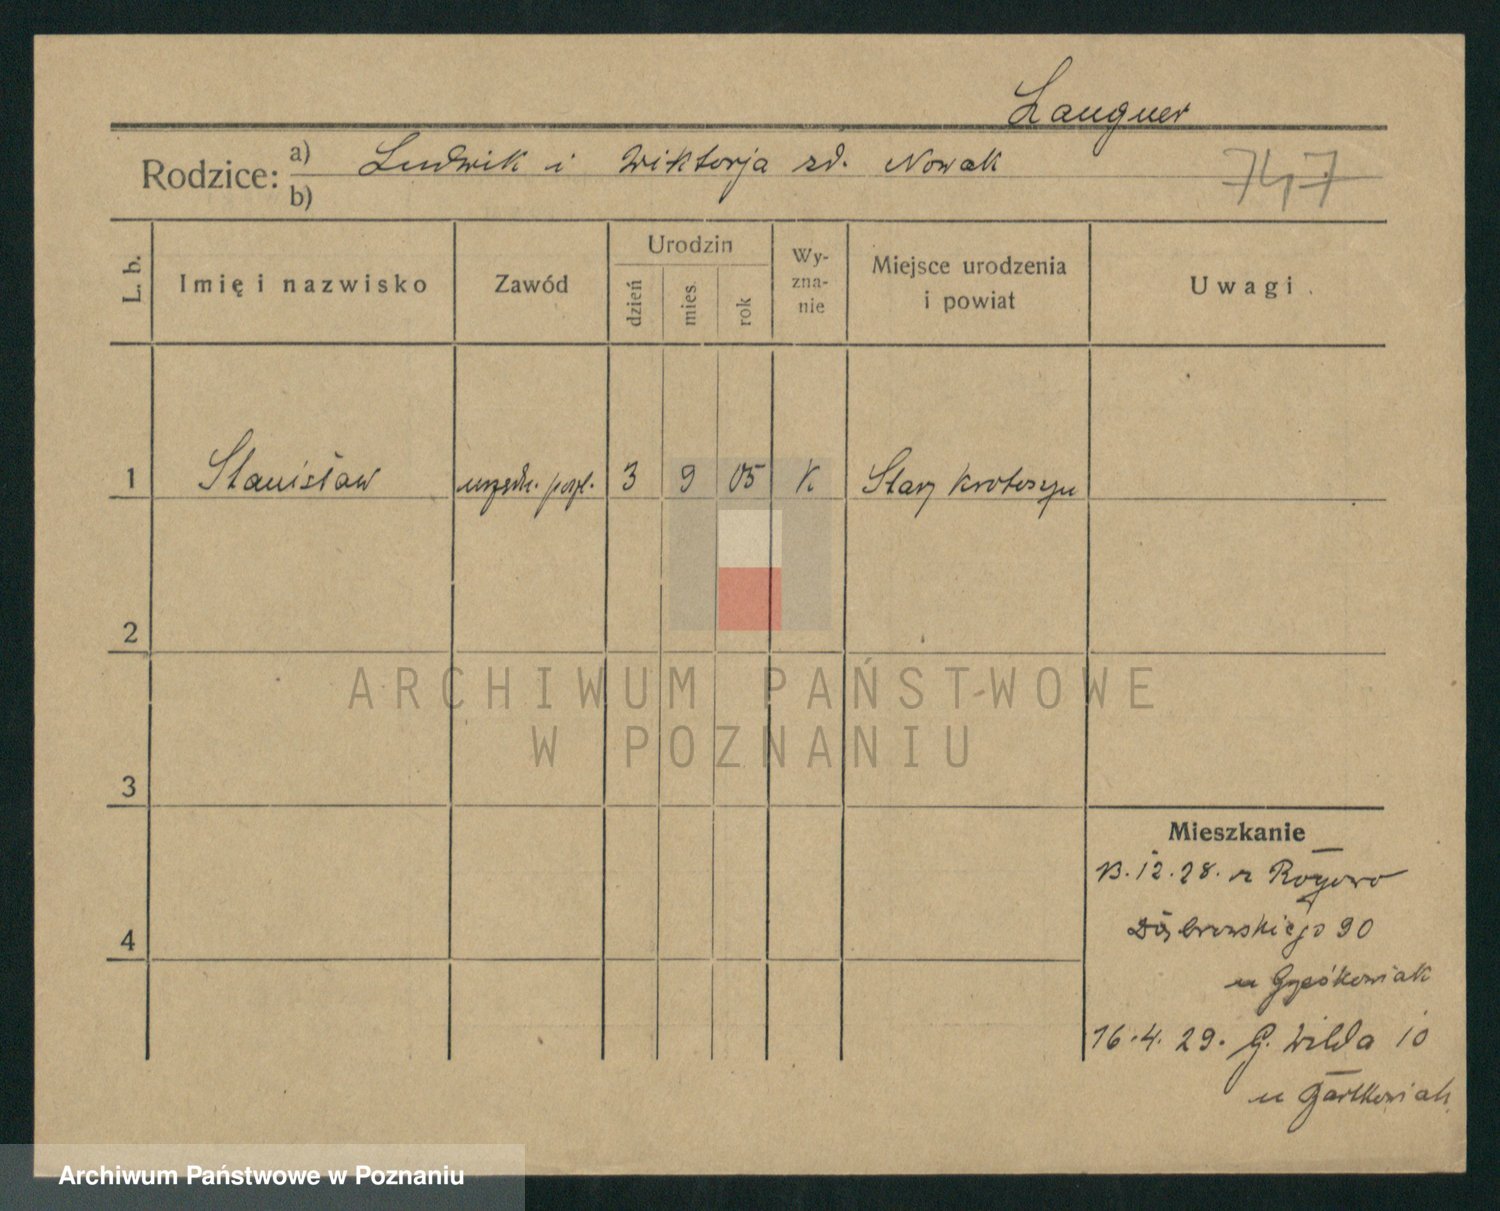 Langner
Rodzice: a) Ludwik i Wiktorja zd. Nowak
b)
747
L. b.
Imię i nazwisko
Zawód
Urodzin
dzień
mies.
rok
Wy-
zna-
nie
Miejsce urodzenia
i powiat
Uwagi
1 Stanisław urzędn. poszt. 3 9 05 K Stary Krotoszyn
2
3
4
Mieszkanie
13.12.28. z Rogowo
Dąbrowskiego 90
u Grześkowiak
16.4.29. G. Wilda 10
u Bartkowiak
ARCHIWUM PAŃSTWOWE
W POZNANIU
Archiwum Państwowe w Poznaniu